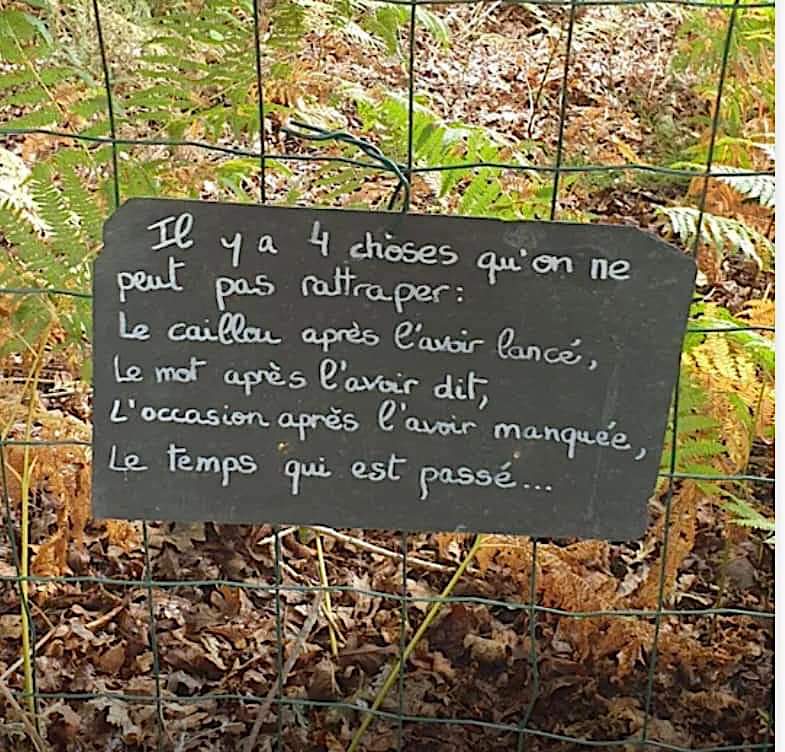 Il y a 4 choses qu'on ne
peut pas rattraper:
Le caillou après l'avoir lancé,
Le mot après l'avoir dit,
L'occasion après l'avoir manquée,
Le temps qui est passé...